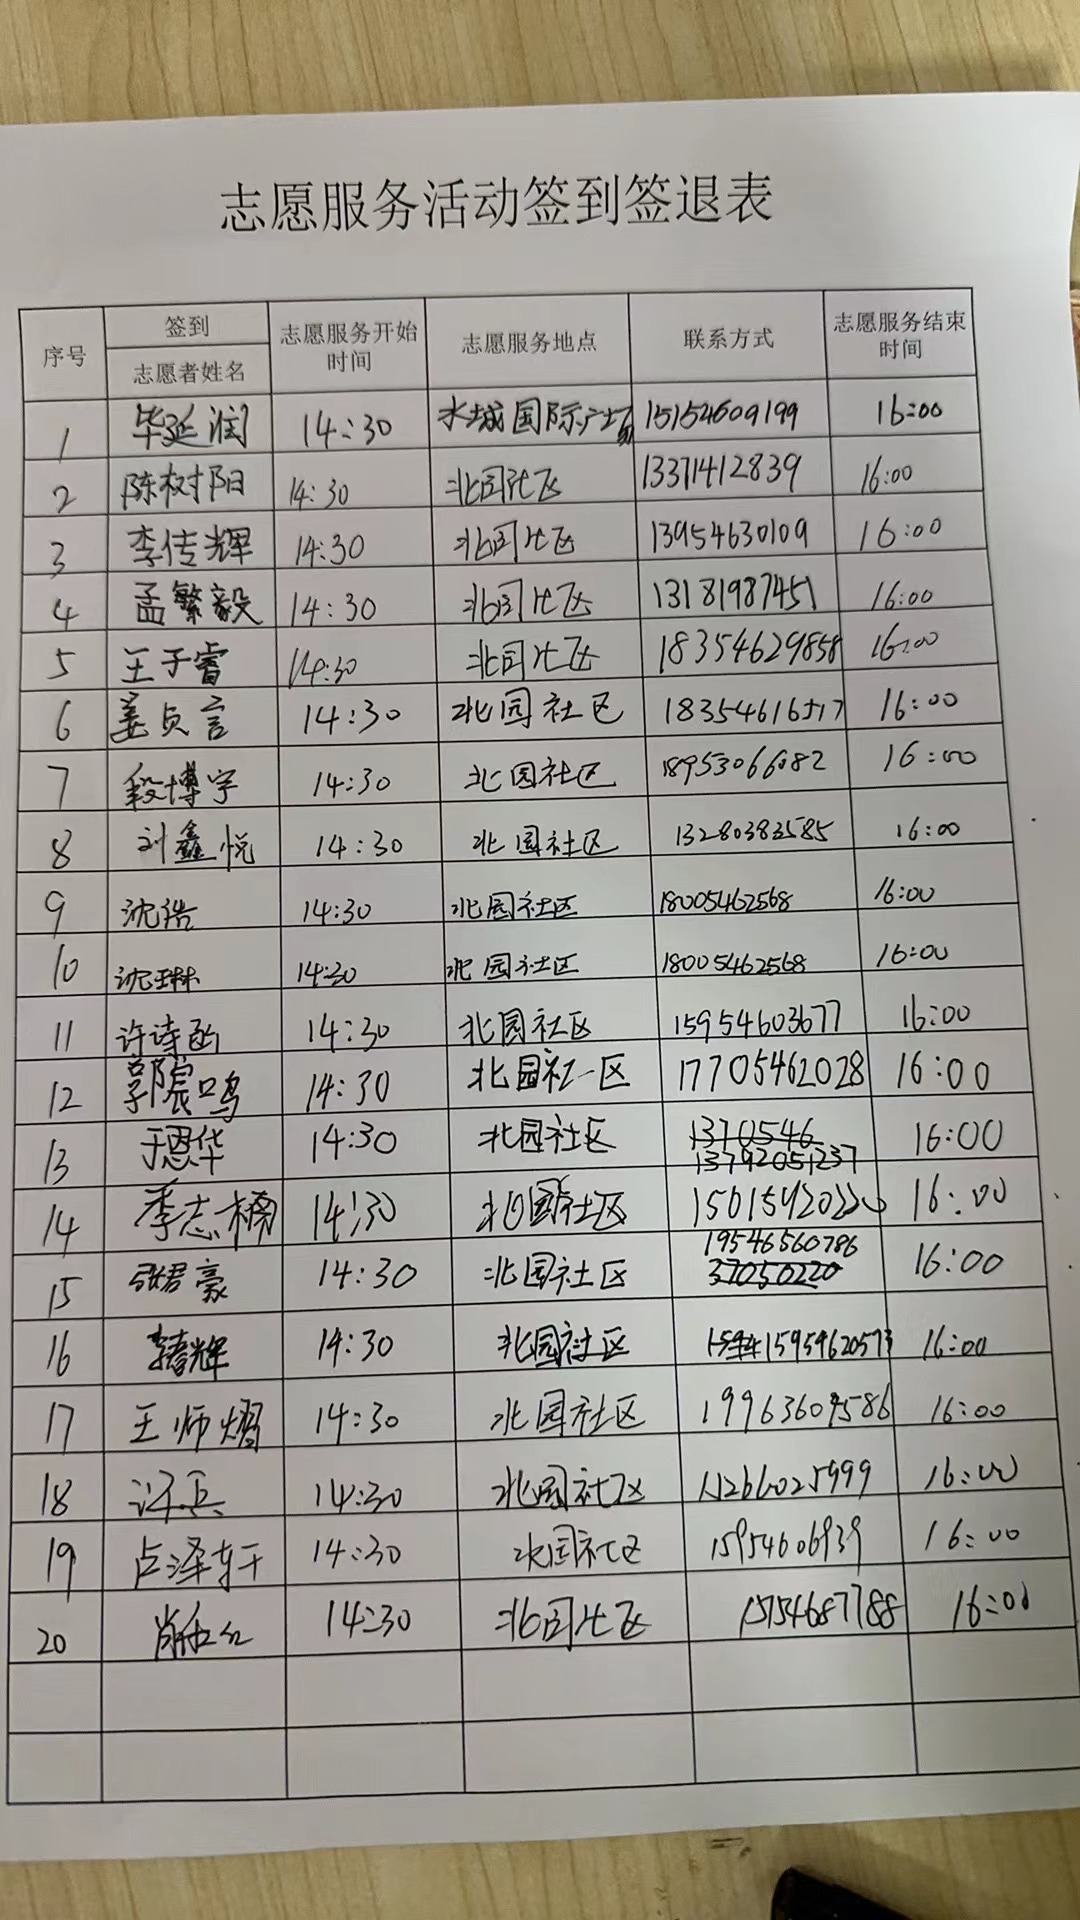 志愿服务活动签到签退表
序号 签到 志愿者姓名 志愿服务开始时间 志愿服务地点 联系方式 志愿服务结束时间
1 毕延润 14:30 水城国际广场 15154609199 16:00
2 陈树阳 14:30 北园社区 13371412839 16:00
3 李传辉 14:30 北园社区 13954630109 16:00
4 孟繁毅 14:30 北园社区 13181987451 16:00
5 王子睿 14:30 北园社区 18354629858 16:00
6 姜贞言 14:30 北园社区 18354616517 16:00
7 段博宇 14:30 北园社区 18953066082 16:00
8 刘鑫悦 14:30 北园社区 13280383585 16:00
9 沈浩 14:30 北园社区 18005462568 16:00
10 沈琳 14:30 北园社区 18005462568 16:00
11 许诗函 14:30 北园社区 15954603677 16:00
12 郭宸鸣 14:30 北园社区 17705462028 16:00
13 于恩华 14:30 北园社区 1370546 13792051237 16:00
14 季志楠 14:30 北园社区 16:00
15 张君豪 14:30 北园社区 19546560786 37050220 16:00
16 14:30 北园社区 15954620573 16:00
17 王师熠 14:30 北园社区 16:00
18 许兵 14:30 北园社区 16:00
19 卢泽轩 14:30 北园社区 15954606939 16:00
20 14:30 北园社区 15754687788 16:00